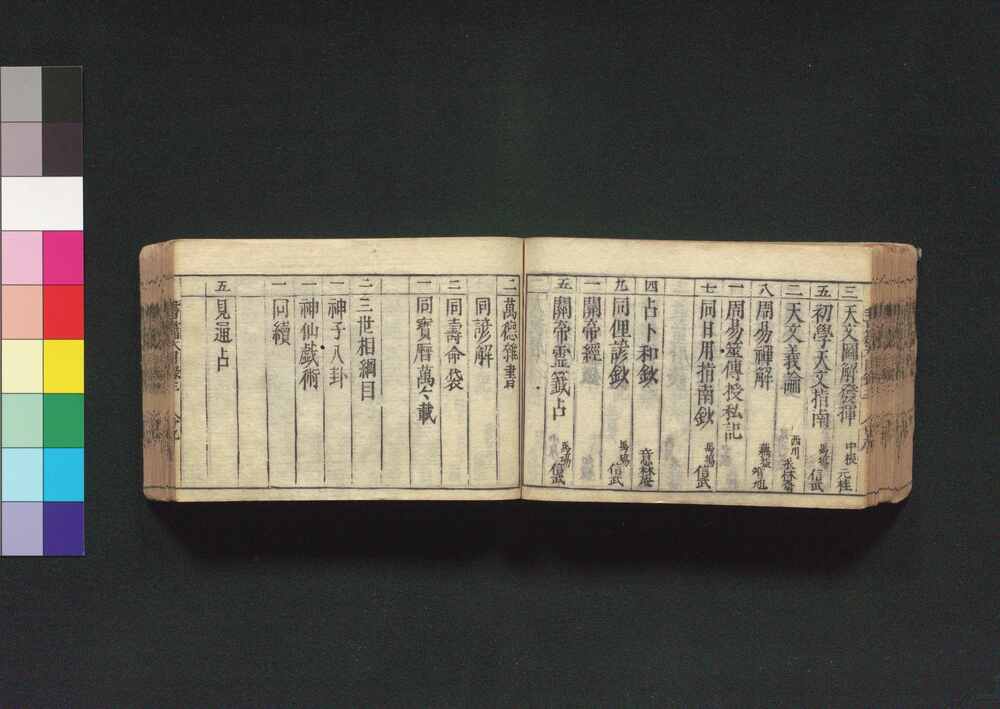 三 天文圖解發揮 中根 元珪
五 初學天文指南 馬場 信武
二 天文義論 西川
八 周易禪解
一 周易筮傳授私記
七 同日用指南鈔 馬場 信武
四 占卜和鈔 意林庵
九 同俚諺鈔 馬場 信武
一 關帝經
五 關帝霊籤占 馬場 信武
二 萬徳雜書
同諺解
二 同壽命袋
一 同寶暦萬々載
二 三世相綱目
一 神子八卦
一 神仙戯術
一 同續
五 見通占